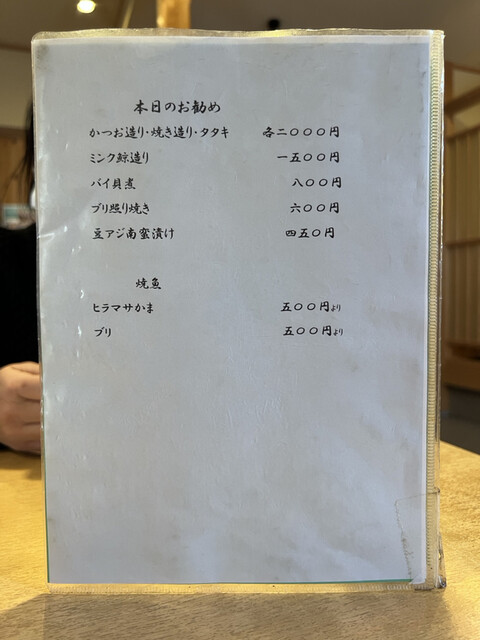 本日のお勧め
かつお造り・焼き造り・タタキ 各二〇〇〇円
ミンク鯨造り 一五〇〇円
バイ貝煮 八〇〇円
ブリ照り焼き 六〇〇円
豆アジ南蛮漬け 四五〇円
焼魚
ヒラマサかま 五〇〇円より
ブリ 五〇〇円より